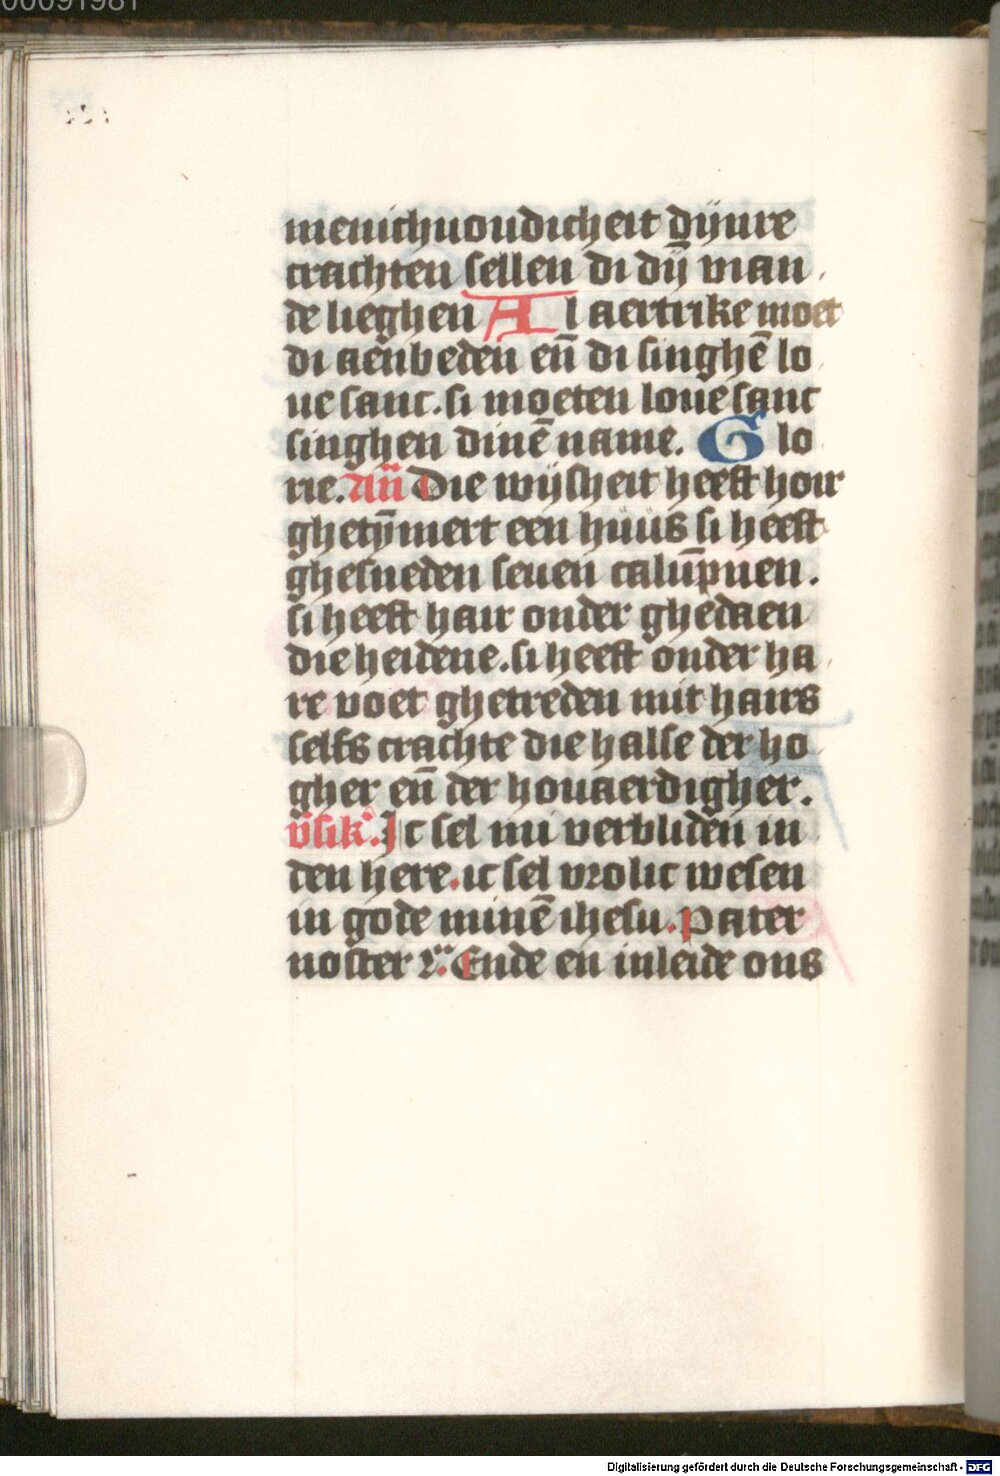 00091981
menichuoudicheit dÿnre
crachten sellen di dÿ vian
de lieghen Al aertrike moet
di aenbeden eñ di singhē lo
ue sanc. si moeten loue sanc
singhen dinē name. Glo
rie. Añ Die wijsheit heeft hoir
ghetȳmert een hüüs si heeft
ghesneden seuen calūpnen.
si heeft hair onder ghedaen
die heidene. si heeft onder ha
re voet ghetreden mit hairs
selfs crachte die halse der ho
gher eñ der houaerdigher.
v̄sik̉. Ic sel mi verbliden in
den here. ic sel vrolic wesen
in gode minē ihesu. Pater
noster ꝛ̃. Ende en inleide ons
Digitalisierung gefördert durch die Deutsche Forschungsgemeinschaft - DFG